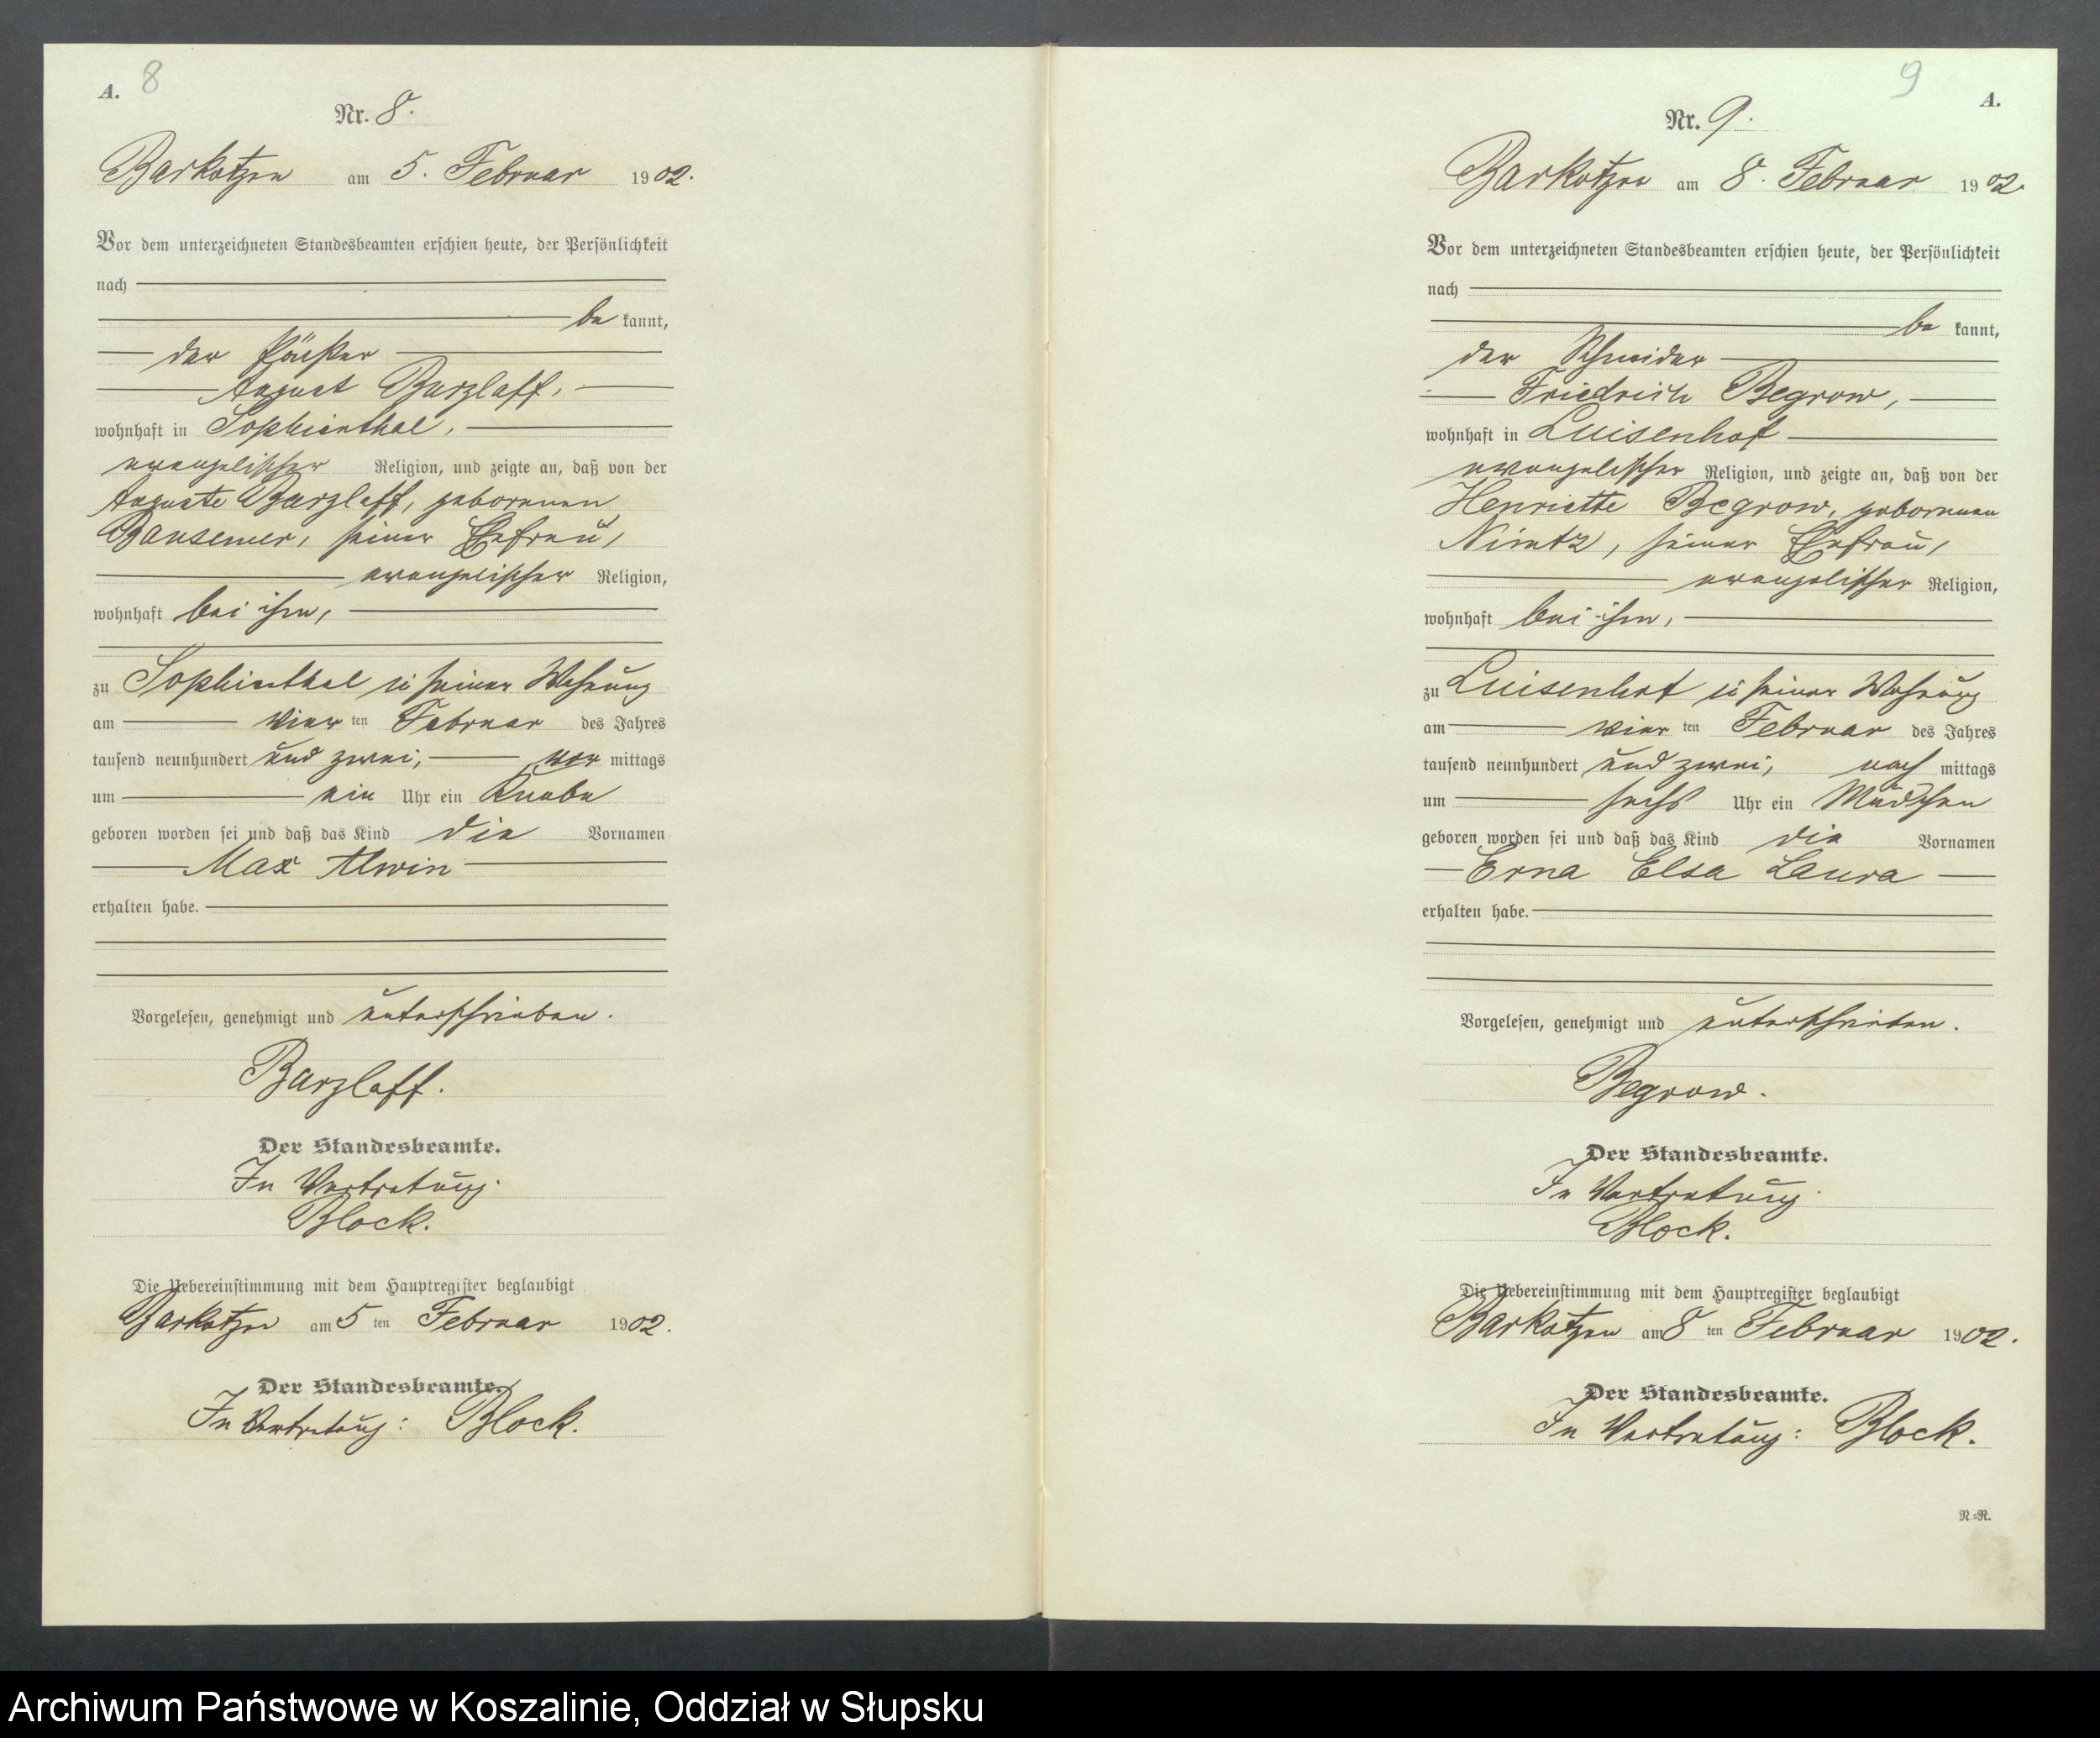 A. 8
Nr. 8.
Barkotzen am 5. Februar 1902.
Vor dem unterzeichneten Standesbeamten erschien heute, der Persönlichkeit
nach
be kannt,
der
August Barzlaff,
wohnhaft in Sophienthal,
evangelischer Religion, und zeigte an, daß von der
Auguste Barzlaff, geborenen
Bansemer, seiner Ehefrau,
evangelischer Religion,
wohnhaft bei ihm,
zu Sophienthal in seiner Wohnung
am vier ten Februar des Jahres
tausend neunhundert und zwei, vor mittags
um ein Uhr ein Knabe
geboren worden sei und daß das Kind die Vornamen
Max Alwin
erhalten habe.
Vorgelesen, genehmigt und unterschrieben.
Barzlaff.
Der Standesbeamte.
In Vertretung.
Block.
Die Uebereinstimmung mit dem Hauptregister beglaubigt
Barkotzen am 5 ten Februar 1902.
Der Standesbeamte.
In Vertretung: Block.
9 A.
Nr. 9.
Barkotzen am 8. Februar 1902.
Vor dem unterzeichneten Standesbeamten erschien heute, der Persönlichkeit
nach
be kannt,
der Schneider
Friedrich Begrow,
wohnhaft in Luisenhof
evangelischer Religion, und zeigte an, daß von der
Henriette Begrow, geborenen
Nimtz, seiner Ehefrau,
evangelischer Religion,
wohnhaft bei ihm,
zu Luisenhof in seiner Wohnung
am vier ten Februar des Jahres
tausend neunhundert und zwei, nach mittags
um sechs Uhr ein Mädchen
geboren worden sei und daß das Kind die Vornamen
Erna Elsa Laura
erhalten habe.
Vorgelesen, genehmigt und unterschrieben.
Begrow.
Der Standesbeamte.
In Vertretung.
Block.
Die Uebereinstimmung mit dem Hauptregister beglaubigt
Barkotzen am 8 ten Februar 1902.
Der Standesbeamte.
In Vertretung: Block.
N=R.
Archiwum Państwowe w Koszalinie, Oddział w Słupsku